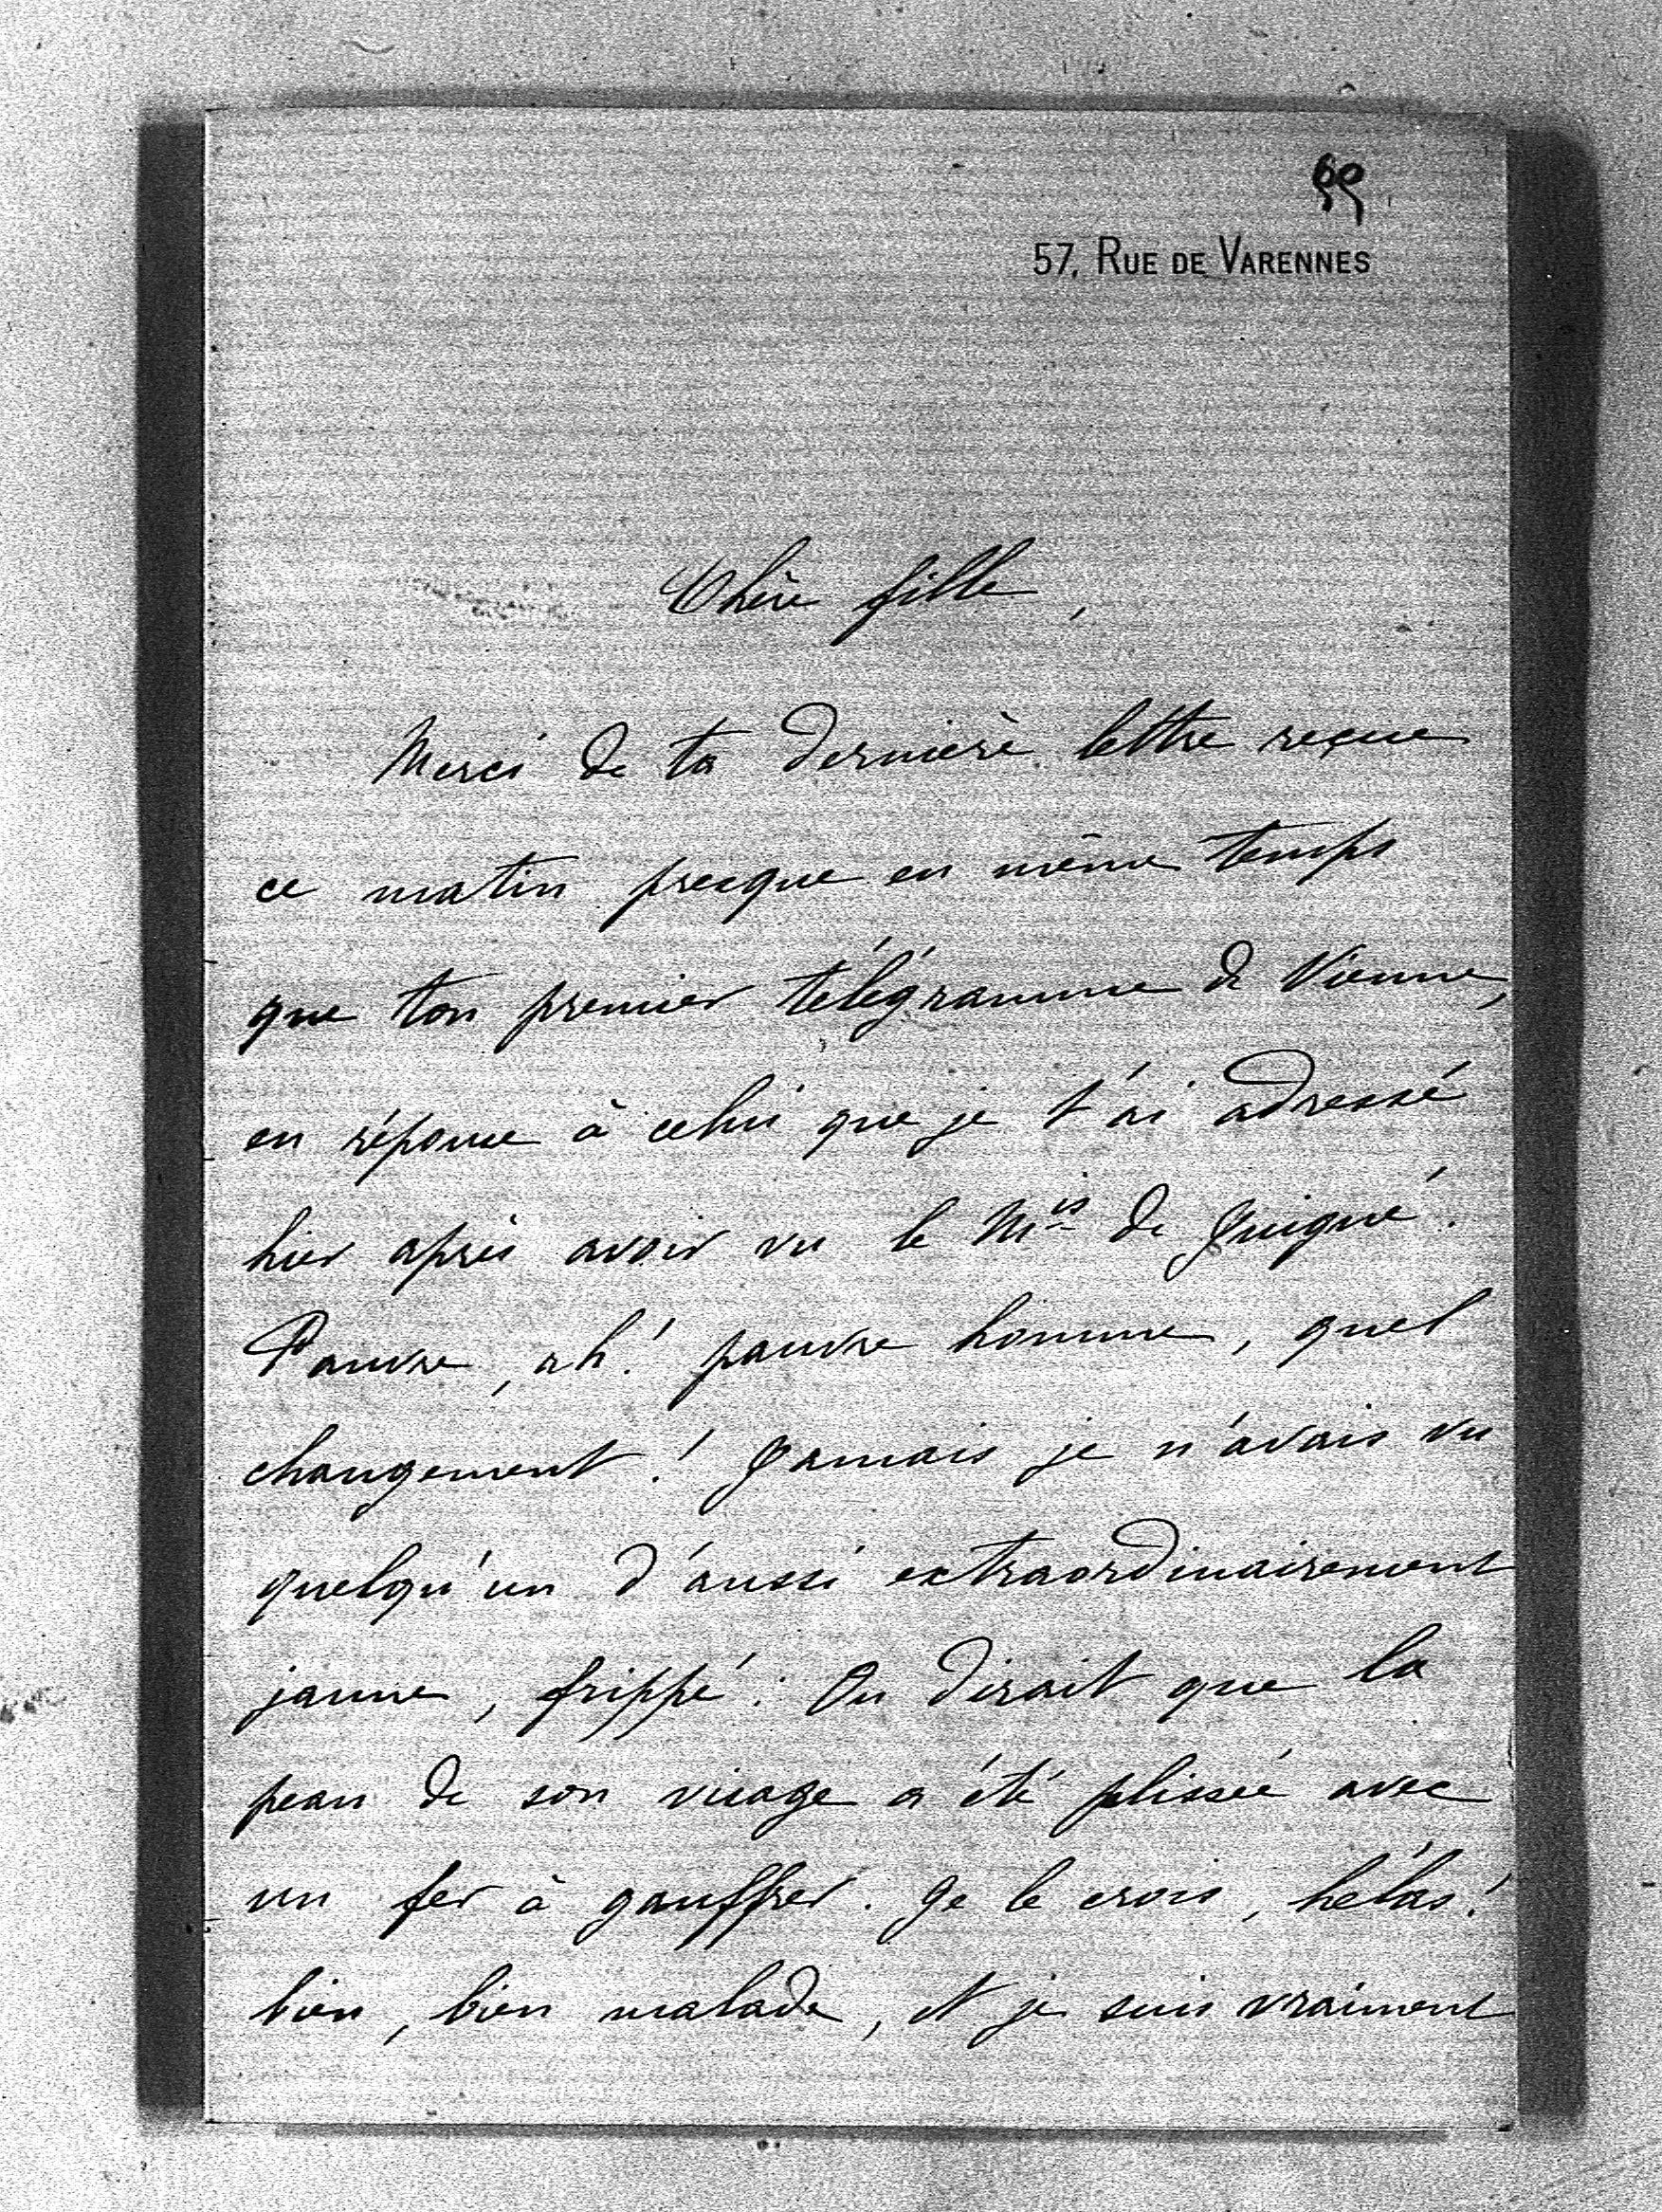 57, RUE DE VARENNES
Chère fille,
Merci de ta dernière lettre reçue
ce matin presque en même temps
que ton premier télégramme de Vienne,
en réponse à celui que je t'ai adressé
hier après avoir vu le Mis de Juigné.
Pauvre, ah! pauvre homme, quel
changement! Jamais je n'avais vu
quelqu'un d'aussi extraordinairement
jaune, frippé: On dirait que la
peau de son visage a été plissée avec
un fer à gauffrer. Je le crois, hélas!
bien, bien malade, et je suis vraiment